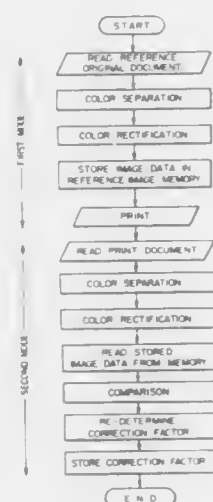 START
READ REFERENCE
ORIGINAL DOCUMENT
COLOR SEPARATION
COLOR RECTIFICATION
STORE IMAGE DATA IN
REFERENCE IMAGE MEMORY
PRINT
READ PRINT DOCUMENT
COLOR SEPARATION
COLOR RECTIFICATION
READ STORED
IMAGE DATA FROM MEMORY
COMPARISON
RE-DETERMINE
CORRECTION FACTOR
STORE CORRECTION FACTOR
END
FIRST MODE
SECOND MODE